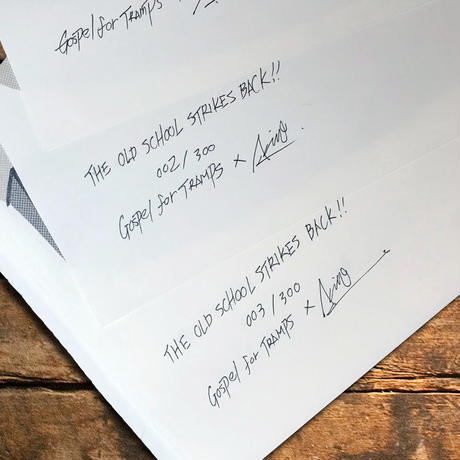 Gospel for TRAMPS ×
THE OLD SCHOOL STRIKES BACK!!
002 / 300
Gospel for TRAMPS ×
THE OLD SCHOOL STRIKES BACK!!
003 / 300
Gospel for TRAMPS ×